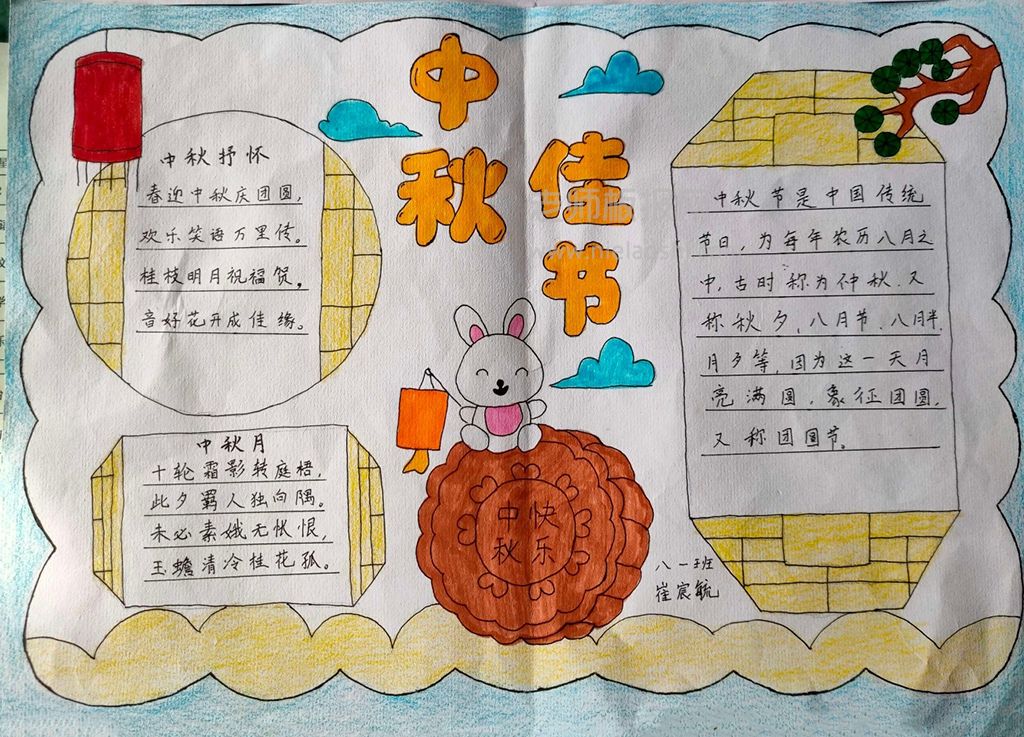 中秋佳节
中秋抒怀
春迎中秋庆团圆,
欢乐笑语万里传。
桂枝明月祝福贺。
音好花开成佳缘。
中秋月
十轮霜影转庭梧,
此夕羁人独向隅。
未必素娥无怅恨,
玉蟾清冷桂花孤。
中秋节是中国传统
节日,为每年农历八月之
中,古时称为仲秋.又
称秋夕、八月节、八月半,
月夕等,因为这一天月
亮满圆,象征团圆,
又称团圆节。
中快
秋乐
八一班
崔宸毓